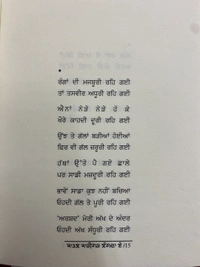 ਰੰਗਾਂ ਦੀ ਮਜਬੂਰੀ ਰਹਿ ਗਈ
ਤਾਂ ਤਸਵੀਰ ਅਧੂਰੀ ਰਹਿ ਗਈ
ਐਨਾਂ ਨੇੜੇ ਨੇੜੇ ਹੋ ਕੇ
ਖੌਰੇ ਕਾਹਦੀ ਦੂਰੀ ਰਹਿ ਗਈ
ਉਂਝ ਤੇ ਗੱਲਾਂ ਬੜੀਆਂ ਹੋਈਆਂ
ਫਿਰ ਵੀ ਗੱਲ ਜ਼ਰੂਰੀ ਰਹਿ ਗਈ
ਹੱਥਾਂ ਉੱਤੇ ਪੈ ਗਏ ਛਾਲੇ
ਪਰ ਸਾਡੀ ਮਜ਼ਦੂਰੀ ਰਹਿ ਗਈ
ਭਾਵੇਂ ਸਾਡਾ ਕੁਝ ਨਹੀਂ ਬਚਿਆ
ਓਹਦੀ ਗੱਲ ਤੇ ਪੂਰੀ ਰਹਿ ਗਈ
'ਅਰਸ਼ਦ' ਮੇਰੀ ਅੱਖ ਦੇ ਅੰਦਰ
ਓਹਦੀ ਅੱਖ ਸੰਧੂਰੀ ਰਹਿ ਗਈ
/15